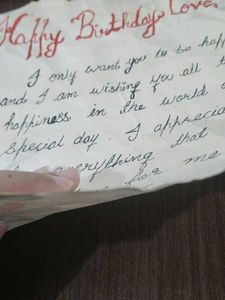 Happy Birthday Love,
I only want you to be happ
and I am wishing you all t
happiness in the world o
special day. I apprecia
everything that
for me